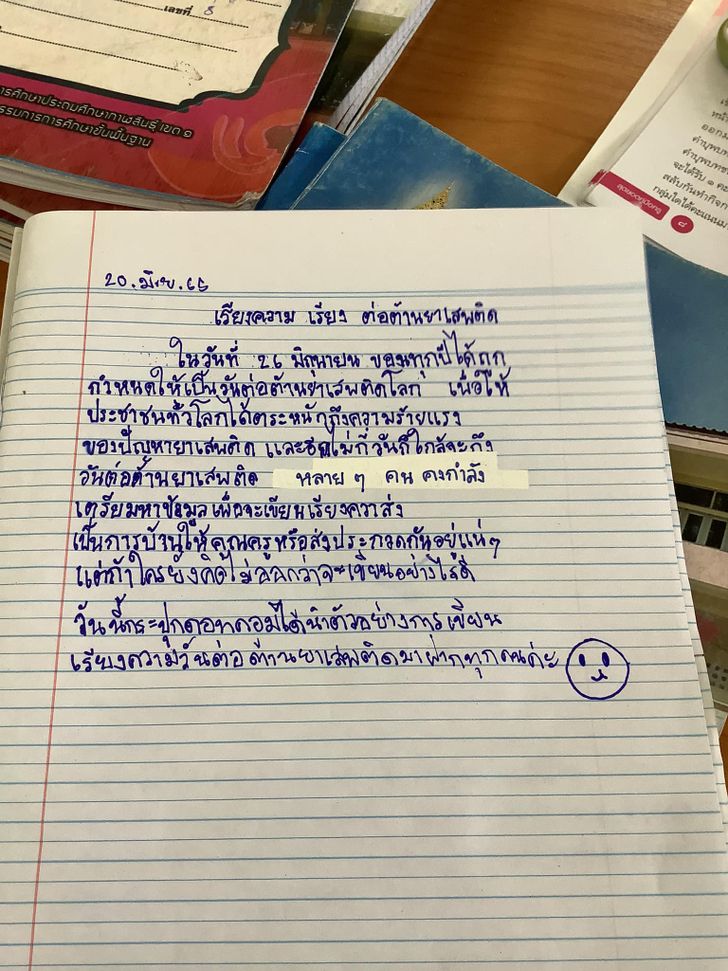 เลขที่ 8
การศึกษาประถมศึกษากาฬสินธุ์ เขต ๑
กรรมการการศึกษาขั้นพื้นฐาน
คำบุพบท
จะได้รับ ๑
สลับกันทำกิจ
กลุ่มใดได้คะแนน
สุดยอดคู่มือครู
๘
20.มิ.ย.65
เรียงความ เรื่อง ต่อต้านยาเสพติด
ในวันที่ 26 มิถุนายน ของทุกปีได้ถูก
กำหนดให้เป็นวันต่อต้านยาเสพติดโลก เพื่อให้
ประชาชนทั่วโลกได้ตระหนักถึงความร้ายแรง
ของปัญหายาเสพติด และอีกไม่กี่วันก็ใกล้จะถึง
วันต่อต้านยาเสพติด หลาย ๆ คน คงกำลัง
เตรียมหาข้อมูลเพื่อจะเขียนเรียงควาส่ง
เป็นการบ้านให้คุณครูหรือส่งประกวดกันอยู่แน่ๆ
แต่ถ้าใครยังคิดไม่ออกว่าจะเขียนอย่างไรดี
วันนี้กระปุกดอทคอมได้นำตัวอย่างการเขียน
เรียงความวันต่อต้านยาเสพติดมาฝากทุกคนค่ะ